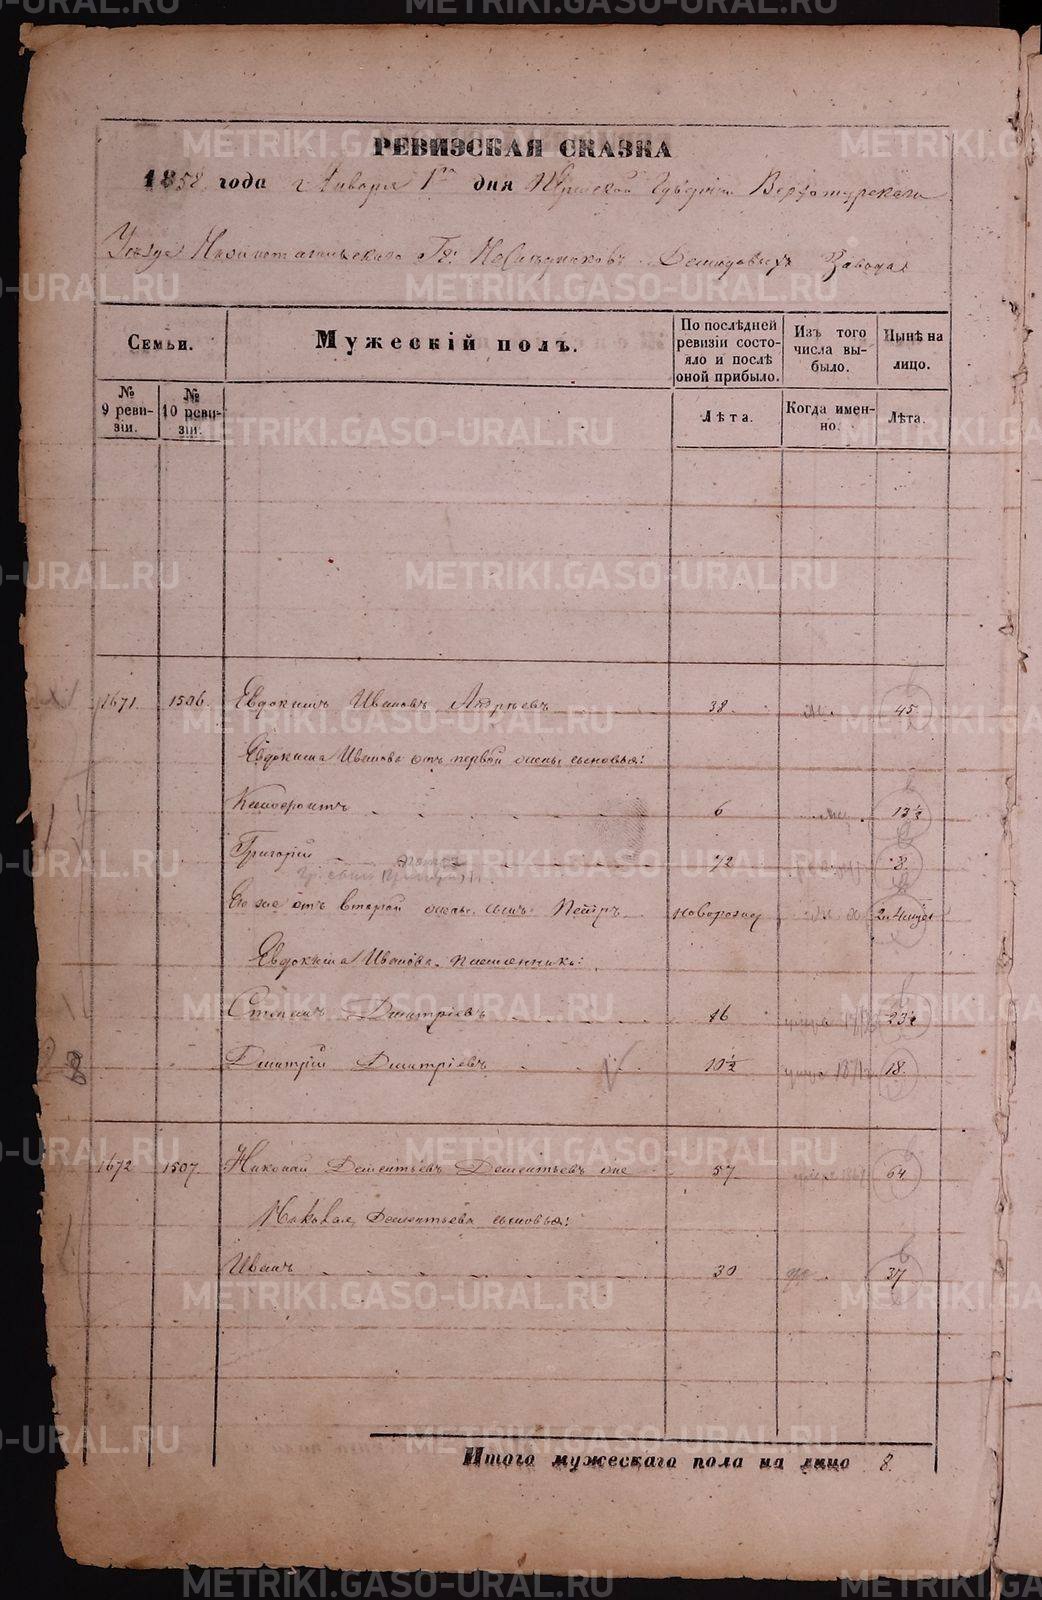 РЕВИЗСКАЯ СКАЗКА
1858 года Января 1го дня Пермской Губернии Верхотурскаго
Уезда Гг: Наследниковъ Демидовыхъ Завода
Семьи.
Мужескій полъ.
По послѣдней ревизіи состояло и послѣ оной прибыло.
Изъ того числа выбыло.
Нынѣ на лицо.
№ 9 ревизіи.
№ 10 ревизіи.
Лѣта.
Когда именно.
Лѣта.
1671. 1506. Евдокимъ Ивановъ 38. 45
Евдокима Иванова отъ первой жены сыновья:
6 13½
Григорій ½ 8
Его же отъ второй жены сынъ Петръ новорожд
Евдокима Иванова племянники:
Степанъ Дмитріевъ 16 23½
Дмитрій Дмитріевъ 10½ 18
1672 1507. Николай Дементьевъ Дементьевъ же 57 64
Николая Дементьева сыновья:
Иванъ 30 37
Итого мужескаго пола на лицо 8.
METRIKI.GASO-URAL.RU